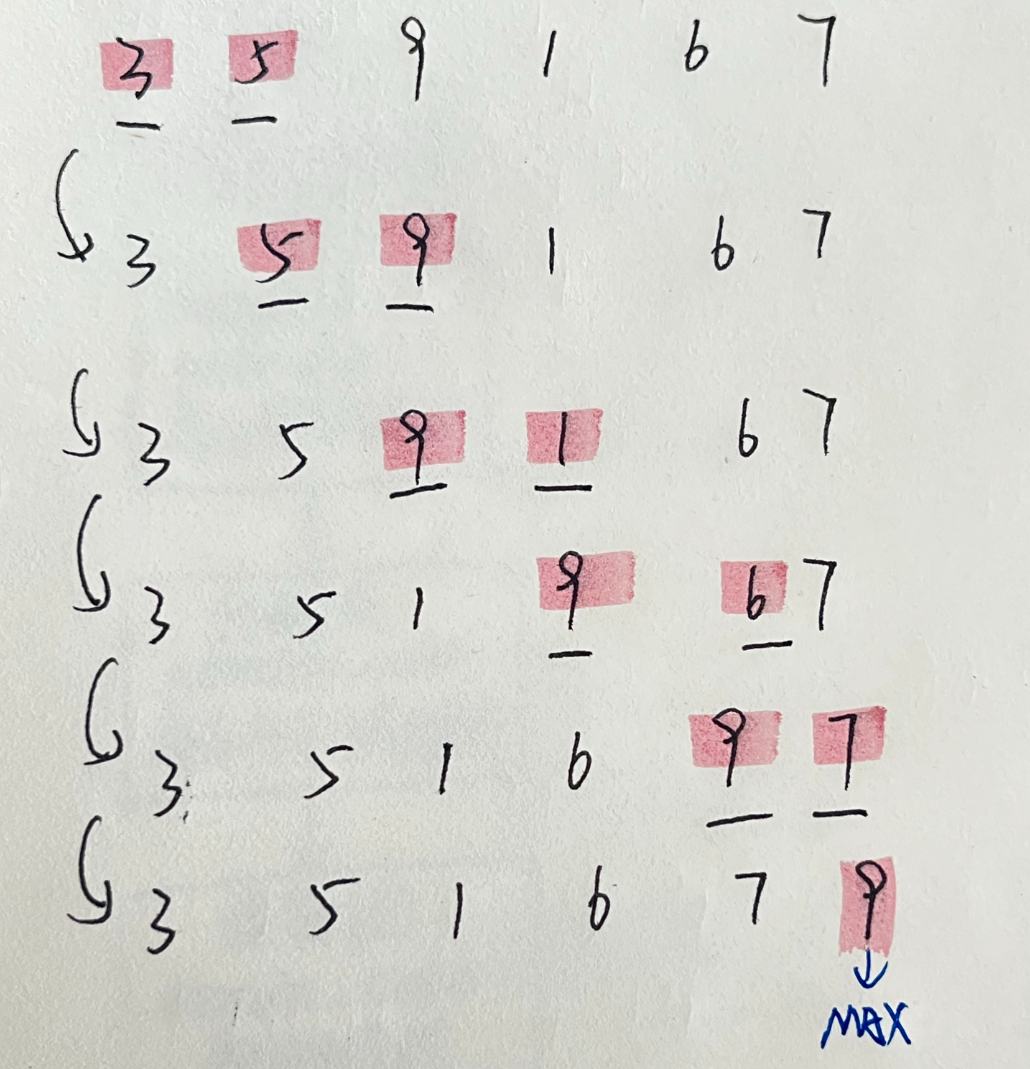 3 5 9 1 6 7
3 5 9 1 6 7
3 5 9 1 6 7
3 5 1 9 6 7
3 5 1 6 9 7
3 5 1 6 7 9
MAX